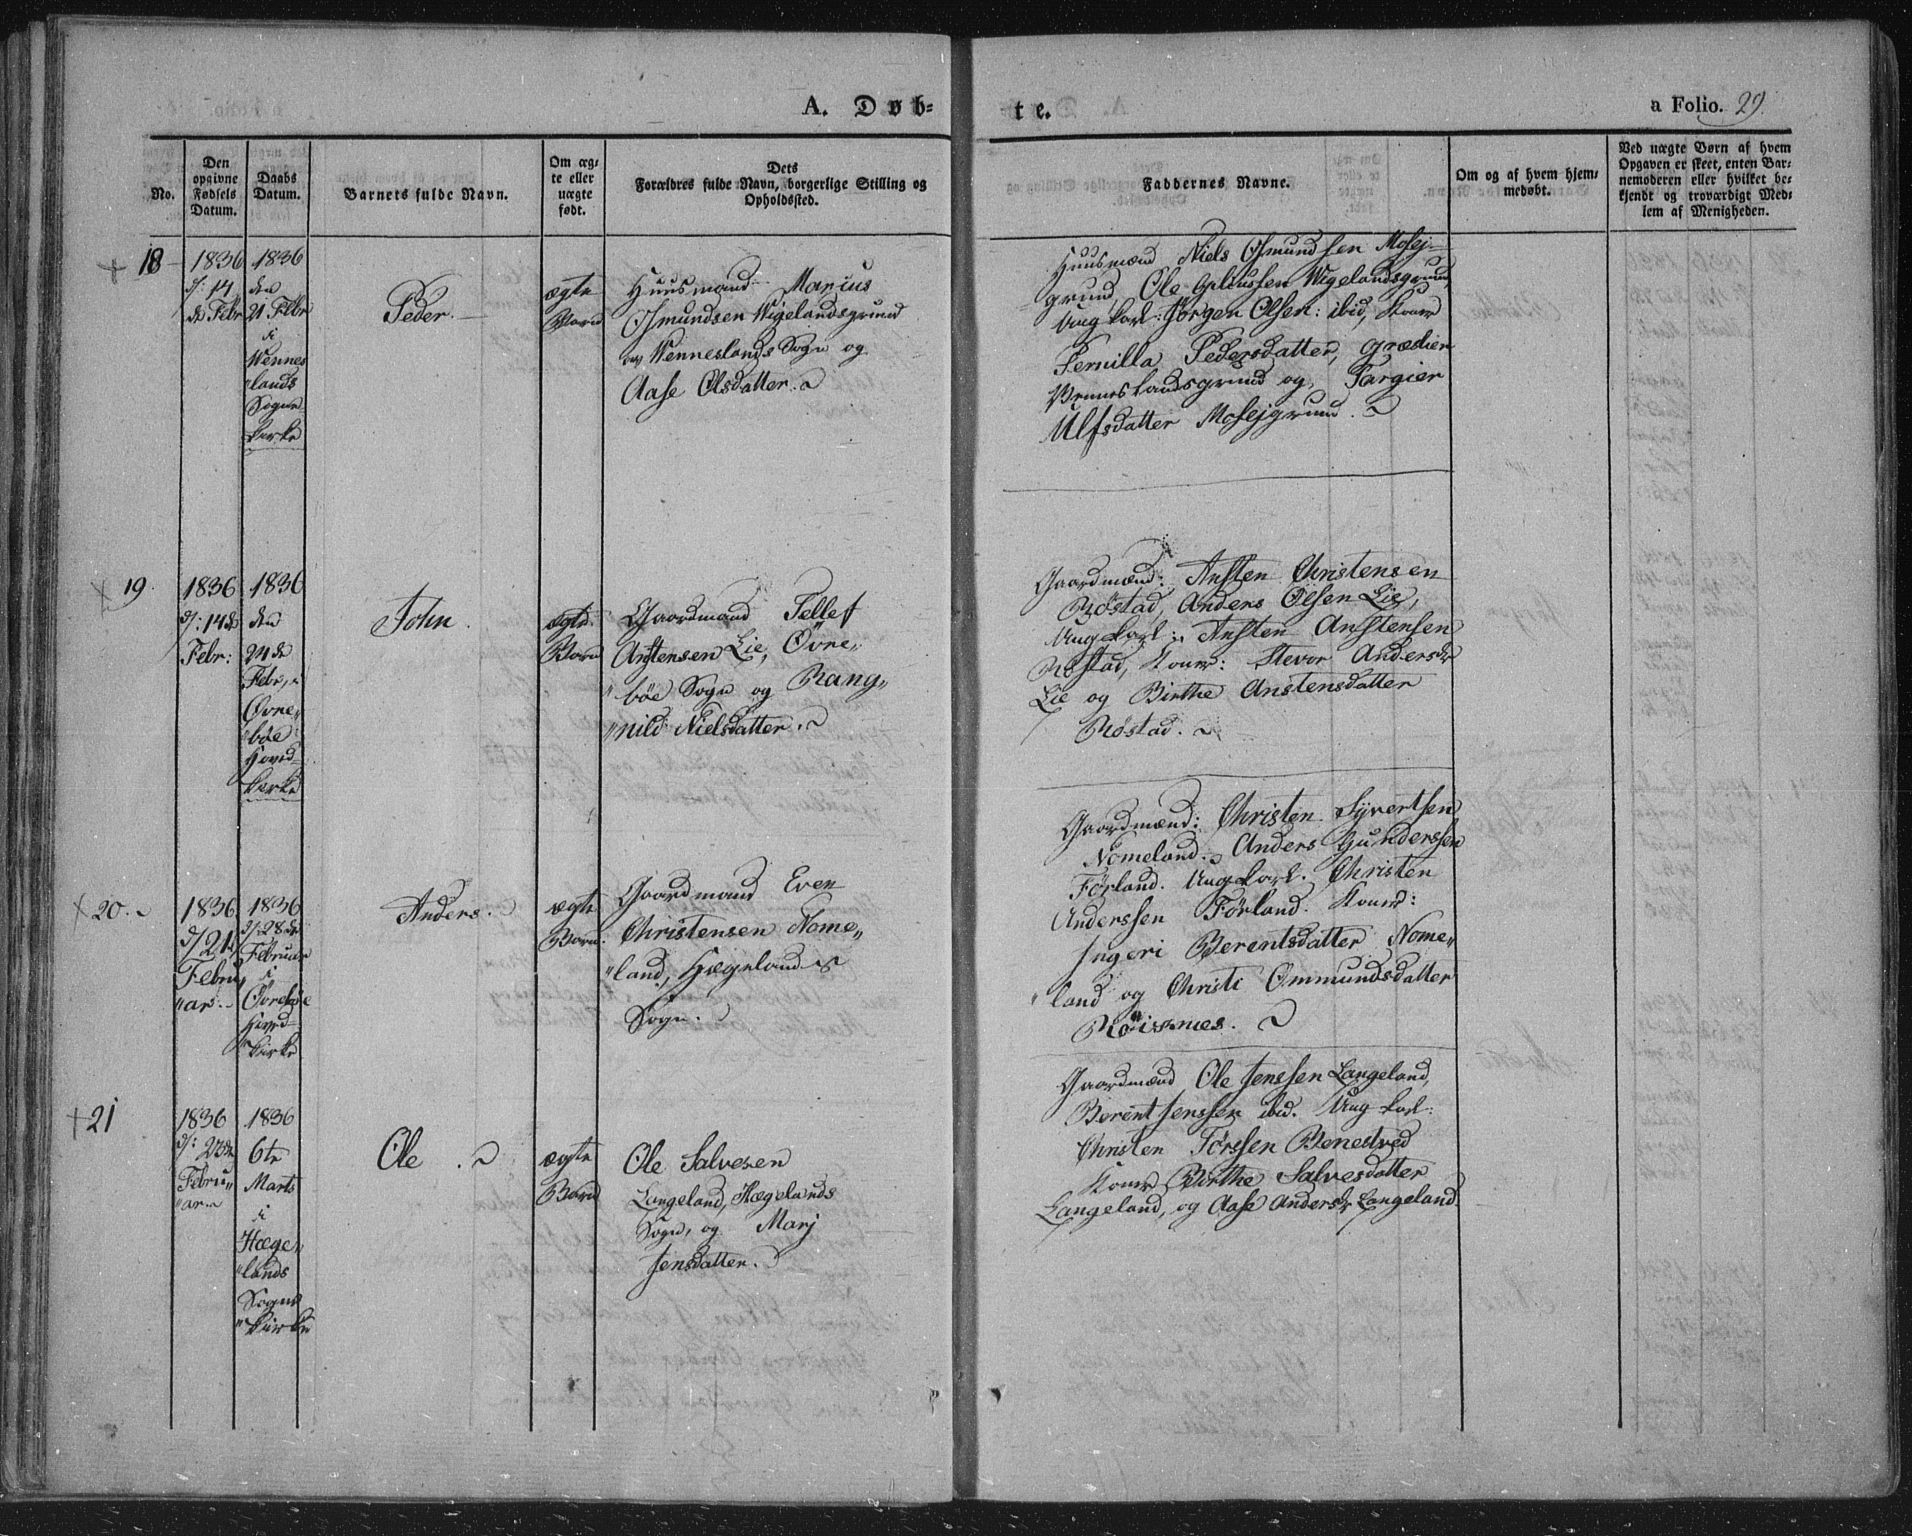 A. Døb-
te.
a Folio. 29.
No.
Den
opgivne
Fødsels
Datum.
Daabs
Datum.
Barnets fulde Navn.
Om æg-
te eller
uægte
født.
Dets
Forældres fulde Navn, borgerlige Stilling og
Opholdssted.
Faddernes Navne.
Om og af hvem hjem-
medøbt.
Ved uægte Børn af hvem
Opgaven er skeet, enten Bar-
nemoderen eller hvilket be-
kjendt og troværdigt Med-
lem af Menigheden.
18
1836
d: 14
de Febr
1836
den
21 Febr
i
Wennes
lands
Sogne
kirke
Peder.
ægte
Barn
Huusmand Marius
Osmundsen Wigelandsgrund
Wenneslands Sogn og
Aase Olsdatter.
Huusmænd Niels Osmundsen Mosej-
grund, Ole Wigelandsgrund,
Ungkarl: Jørgen Olsen: ibid, Koner
Pernilla Pedersdatter,
Venneslandsgrund og Targier
Ulfsdatter Mosejgrund.
19.
1836
d: 14de
Febr:
1836
den
24de
Febr,
Øvre„
„böe
Hoved-
kirke
John.
ægte
Barn
Gaardmand Tellef
Anstensen Lie, Øvre„
„böe Sogn og Rang„
„nild Nielsdatter.
Gaardmænd: Ansten Christensen
Röstad, Anders Olsen Lie,
Ungkarl: Ansten Anstensen
Röstad, Koner: Stevor Andersdr
Lie og Birthe Anstensdatter
Röstad.
20.
1836
d/21
Febru„
„ar.
1836
d/28de
Februar
i
Övreböe
Hoved-
kirke
Anders.
ægte
Barn.
Gaardmand Even
Christensen Nome„
„land, Hægelands
Sogn.
Gaardmænd: Christen Syvertsen
Nomeland. Anders Gunderssen
Förland. Ungkarl. Christen
Anderssen Förland. Koner:
Ingeri Berentsdatter Nome„
„land og Christi Ommundsdatter
Röisnes.
21
1836
d: 23de
Febru„
„ar
1836
6te
Marts
i
Hæge„
„lands
Sogne
„kirke
Ole.
ægte
Barn
Ole Salvesen
Langeland, Hægelands
Sogn, og Marj
Jensdatter.
Gaardmænd Ole Jenssen Langeland,
Berent Jenssen ibid. Ungkarl:
Christen Törssen Benestved
Koner Birthe Salvesdatter
Langeland, og Aase Andersdr Langeland.